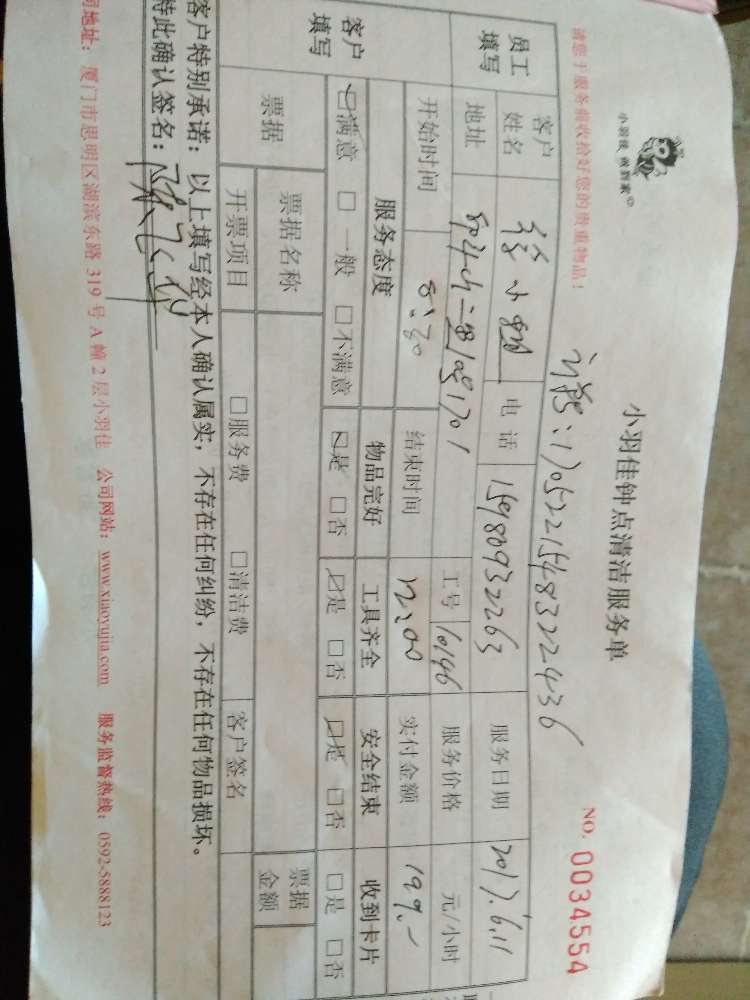 请您于服务前收拾好您的贵重物品!
小羽佳 做到家
小羽佳钟点清洁服务单
NO. 0034554
170522154832436
员工填写
客户姓名
徐小
电话
15980932263
服务日期
2017.6.11
地址
1701
工号
10146
服务价格
元/小时
开始时间
8:30
结束时间
12:00
实付金额
199.-
客户填写
服务态度
物品完好
工具齐全
安全结束
收到卡片
☑满意 □一般 □不满意
☑是 □否
☑是 □否
☑是 □否
□是 □否
票据
票据名称
票据金额
开票项目
□服务费 □清洁费
客户签名
客户特别承诺:以上填写经本人确认属实,不存在任何纠纷,不存在任何物品损坏。
特此确认签名:
司地址:厦门市思明区湖滨东路 319 号 A 幢 2 层小羽佳 公司网站:www.xiaoyujia.com 服务监督热线:0592-5888123